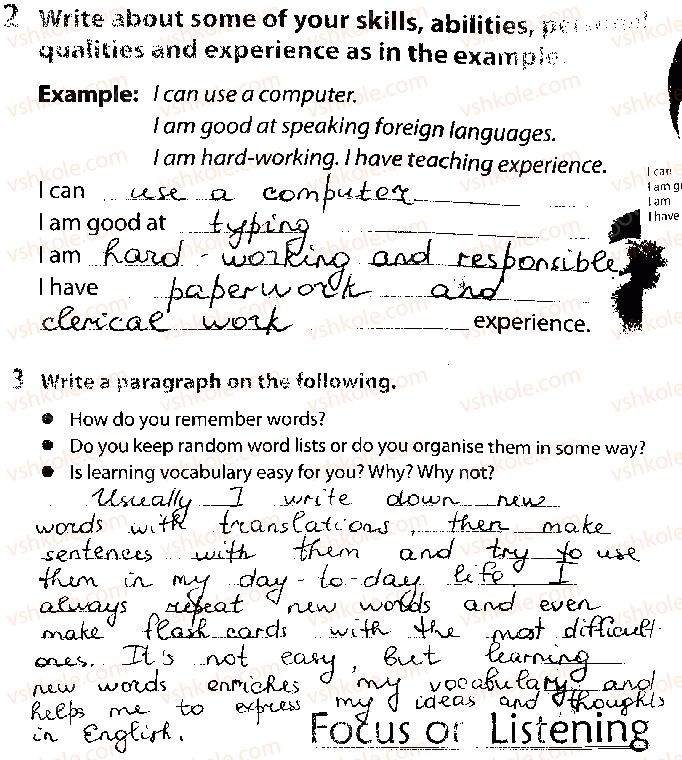 2 Write about some of your skills, abilities, personal
qualities and experience as in the example.
Example: I can use a computer.
I am good at speaking foreign languages.
I am hard-working. I have teaching experience.
I can
I am g
I am
I have
I can use a computer
I am good at typing
I am hard-working and responsible
I have paperwork and
clerical work experience.
3 Write a paragraph on the following.
● How do you remember words?
● Do you keep random word lists or do you organise them in some way?
● Is learning vocabulary easy for you? Why? Why not?
Usually I write down new
words with translations, then make
sentences with them and try to use
them in my day-to-day life. I
always repeat new words and even
make flash cards with the most difficult
ones. It's not easy, but learning
new words enriches my vocabulary and
helps me to express my ideas and thoughts
in English.
Focus on Listening
vshkole.com